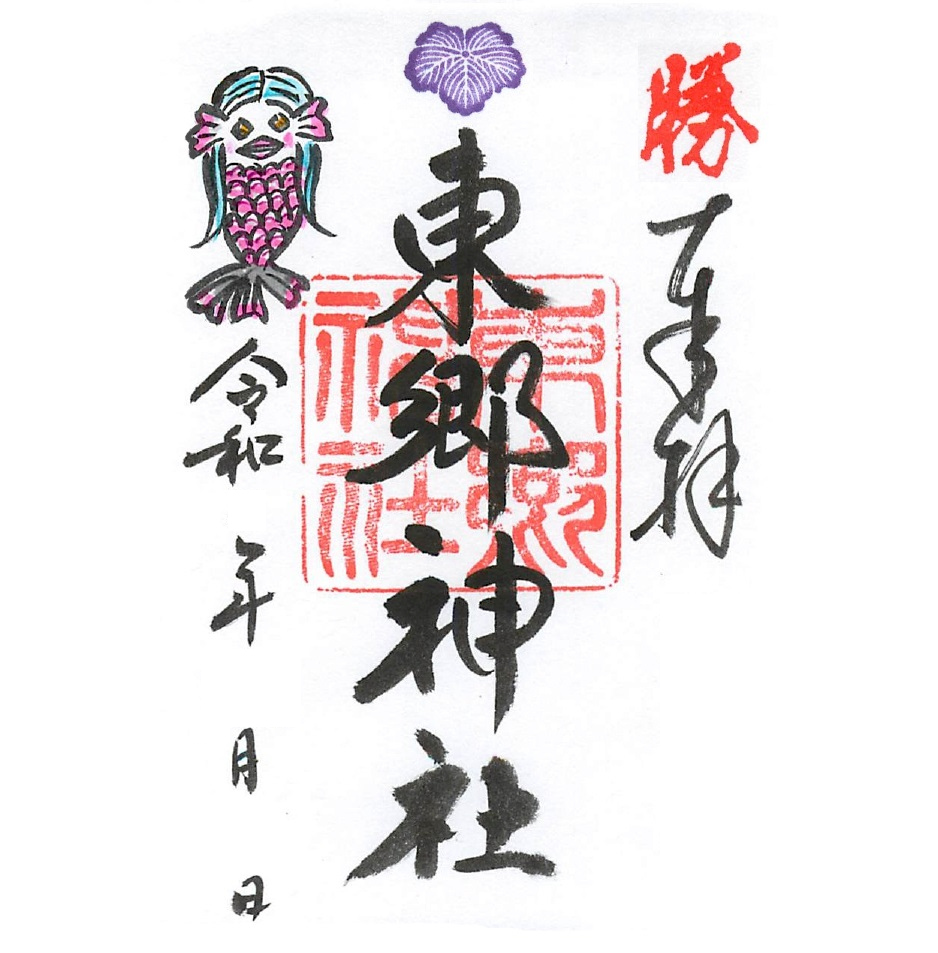 勝
奉拝
東郷神社
東郷神社
令和 年 月 日